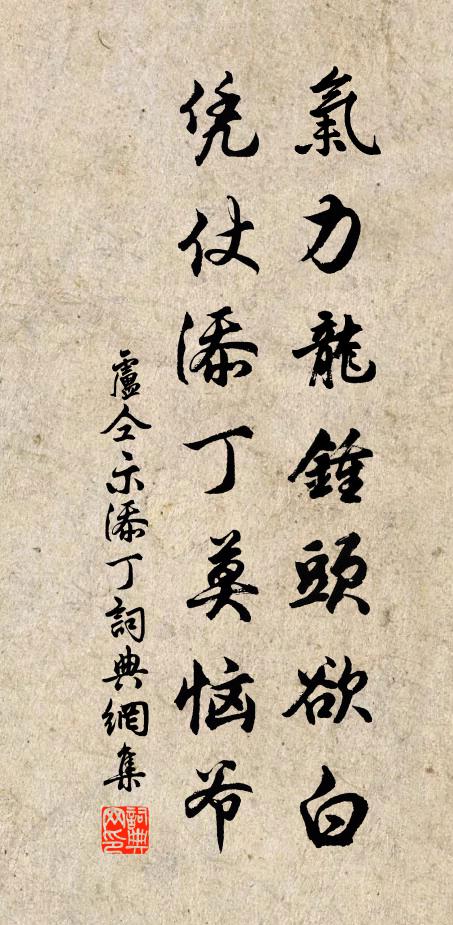 氣力龍鍾頭欲白
凭仗添丁莫惱爺
盧仝示添丁詞典網集
詞典網印